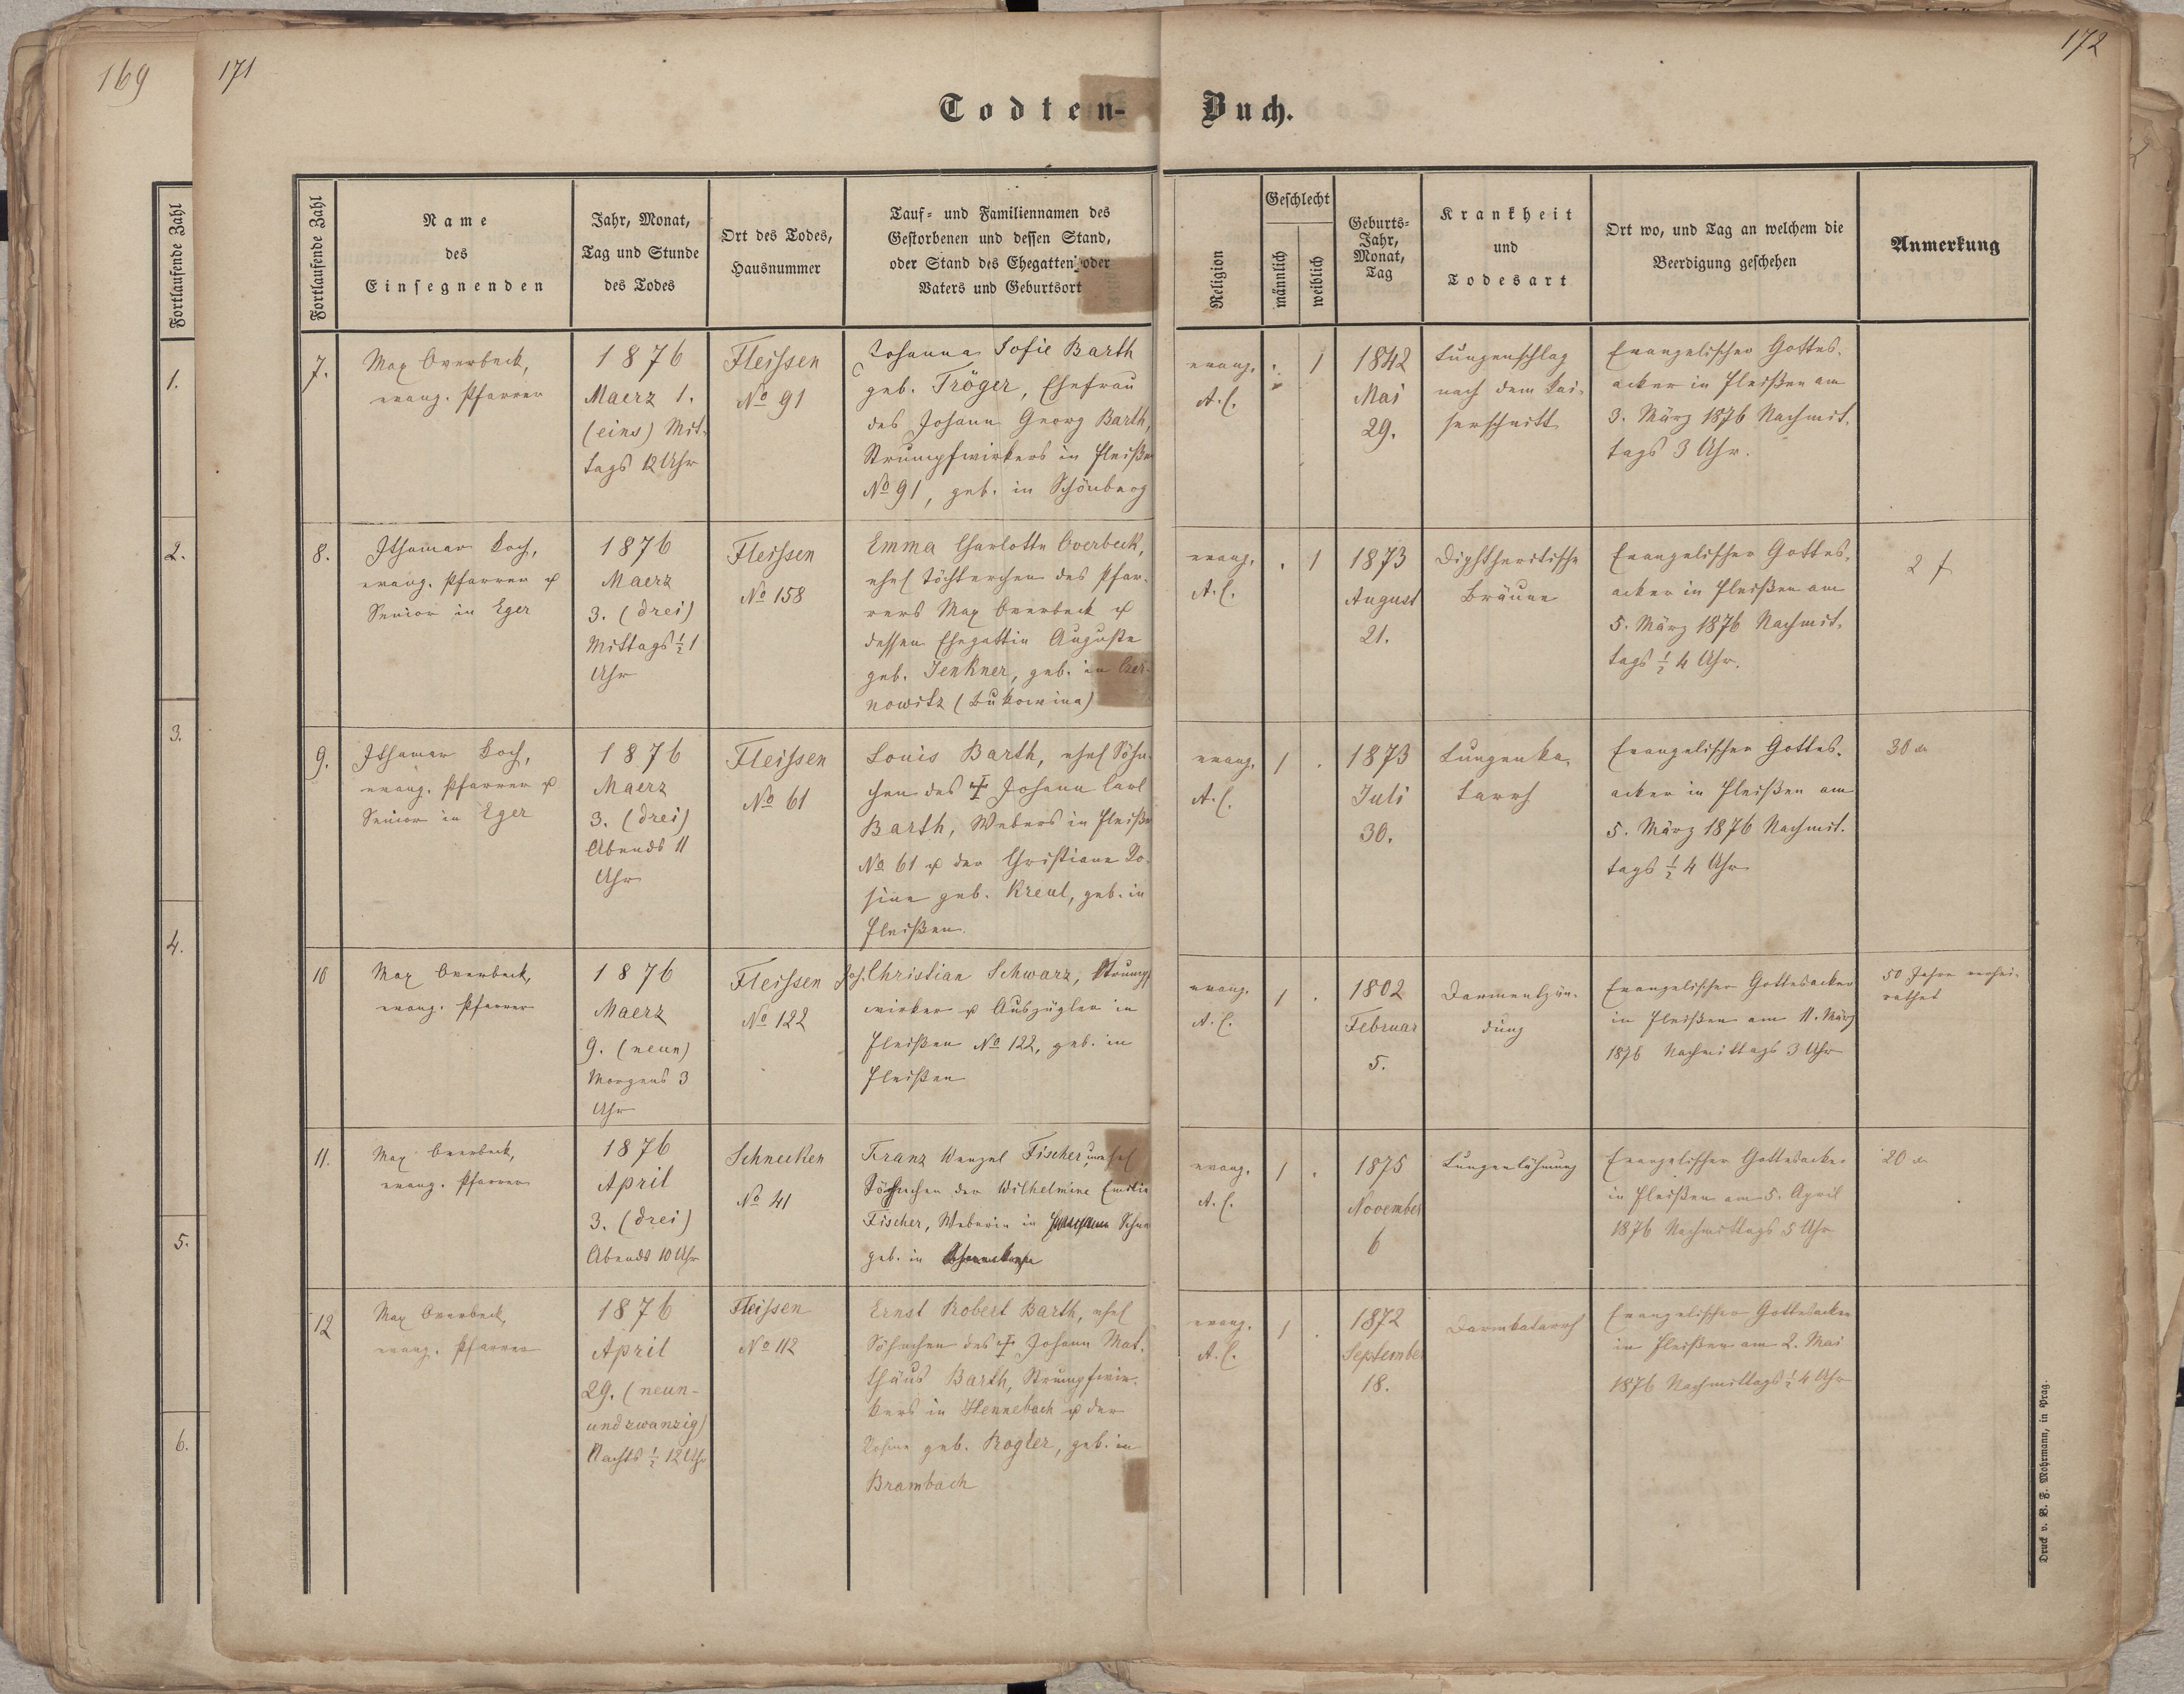 169
171
172
Todten-Buch.
Fortlaufende Zahl
1.
2.
3.
4.
5.
6.
Fortlaufende Zahl
Name
des
Einsegnenden
Jahr, Monat,
Tag und Stunde
des Todes
Ort des Todes,
Hausnummer
Tauf- und Familiennamen des
Gestorbenen und dessen Stand,
oder Stand des Ehegatten oder
Vaters und Geburtsort
Religion
Geschlecht
männlich
weiblich
Geburts-
Jahr,
Monat,
Tag
Krankheit
und
Todesart
Ort wo, und Tag an welchem die
Beerdigung geschehen
Anmerkung
7.
Max Overbeck,
evang. Pfarrer
1876
Maerz 1.
(eins) Mit-
tags 12 Uhr
Fleissen
No 91
Johanna Sofie Barth
geb. Tröger, Ehefrau
des Johann Georg Barth,
Strumpfwirkers in Fleißen
No 91, geb. in Schönberg
evang.
A. C.
1
1842
Mai
29.
Lungenschlag
nach dem Kai-
serschnitt
Evangelischer Gottes-
acker in Fleißen am
3. März 1876 Nachmit-
tags 3 Uhr.
8.
Ithamar Koch,
evang. Pfarrer &
Senior in Eger
1876
Maerz
3. (drei)
Mittags ½ 1
Uhr
Fleissen
No 158
Emma Charlotte Overbeck,
ehel Töchterchen des Pfar-
rers Max Overbeck &
dessen Ehegattin Auguste
geb. Jenkner, geb. in Czer-
nowitz (Bukowina)
evang.
A. C.
. 1
1873
August
21.
Diphtheritische
Bräune
Evangelischer Gottes-
acker in Fleißen am
5. März 1876 Nachmit-
tags ½ 4 Uhr.
2 f
9.
Ithamar Koch,
evang. Pfarrer &
Senior in Eger
1876
Maerz
3. (drei)
Abends 11
Uhr
Fleissen
No 61
Louis Barth, ehel Söhn-
chen des ☩ Johann Carl
Barth, Webers in Fleißen
No 61 & der Christiane Ro-
sine geb. Kreul, geb. in
Fleißen.
evang.
A. C.
1 .
1873
Juli
30.
Lungenka-
tarrh
Evangelischer Gottes-
acker in Fleißen am
5. März 1876 Nachmit-
tags ½ 4 Uhr
30
10
Max Overbeck,
evang. Pfarrer
1876
Maerz
9. (neun)
Morgens 3
Uhr
Fleissen
No 122
Joh. Christian Schwarz, Strumpf
wirker & Auszügler in
Fleißen No 122, geb. in
Fleißen
evang.
A. C.
1 .
1802
Februar
5.
Darmentzün-
dung
Evangelischer Gottesacker
in Fleißen am 11. März
1876 Nachmittags 3 Uhr
50 Jahre verhei-
rathet
11.
Max Overbeck,
evang. Pfarrer
1876
April
3. (drei)
Abends 10 Uhr
Schnecken
No 41
Franz Wenzel Fischer, unehel
Söhnchen der Wilhelmine Emilie
Fischer, Weberin in Schne
geb. in
evang.
A. C.
1 .
1875
November
6
Lungenlähmung
Evangelischer Gottesacker
in Fleißen am 5. April
1876 Nachmittags 5 Uhr
20
12
Max Overbeck,
evang. Pfarrer
1876
April
29. (neun-
undzwanzig)
Nachts ½ 12 Uhr
Fleissen
No 112
Ernst Robert Barth, ehel
Söhnchen des ☩ Johann Mat-
thäus Barth, Strumpfwir-
kers in Hennebach & der
geb. Rogler, geb. in
Brambach
evang.
A. C.
1 .
1872
September
18.
Darmkatarrh
Evangelischer Gottesacker
in Fleißen am 2. Mai
1876 Nachmittags ½ 4 Uhr
Druck v. B. F. Mohrmann, in Prag.